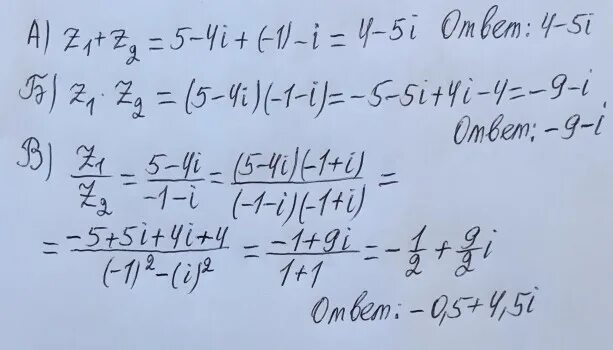 А) z₁+z₂ = 5-4i+(-1)-i = 4-5i Ответ: 4-5i
Б) z₁·z₂ = (5-4i)(-1-i)=-5-5i+4i-4=-9-i
Ответ: -9-i
В) z₁/z₂ = (5-4i)/(-1-i) = ((5-4i)(-1+i))/((-1-i)(-1+i)) =
= (-5+5i+4i+4)/((-1)²-(i)²) = (-1+9i)/(1+1) = -1/2 + 9/2 i
Ответ: -0,5+4,5i